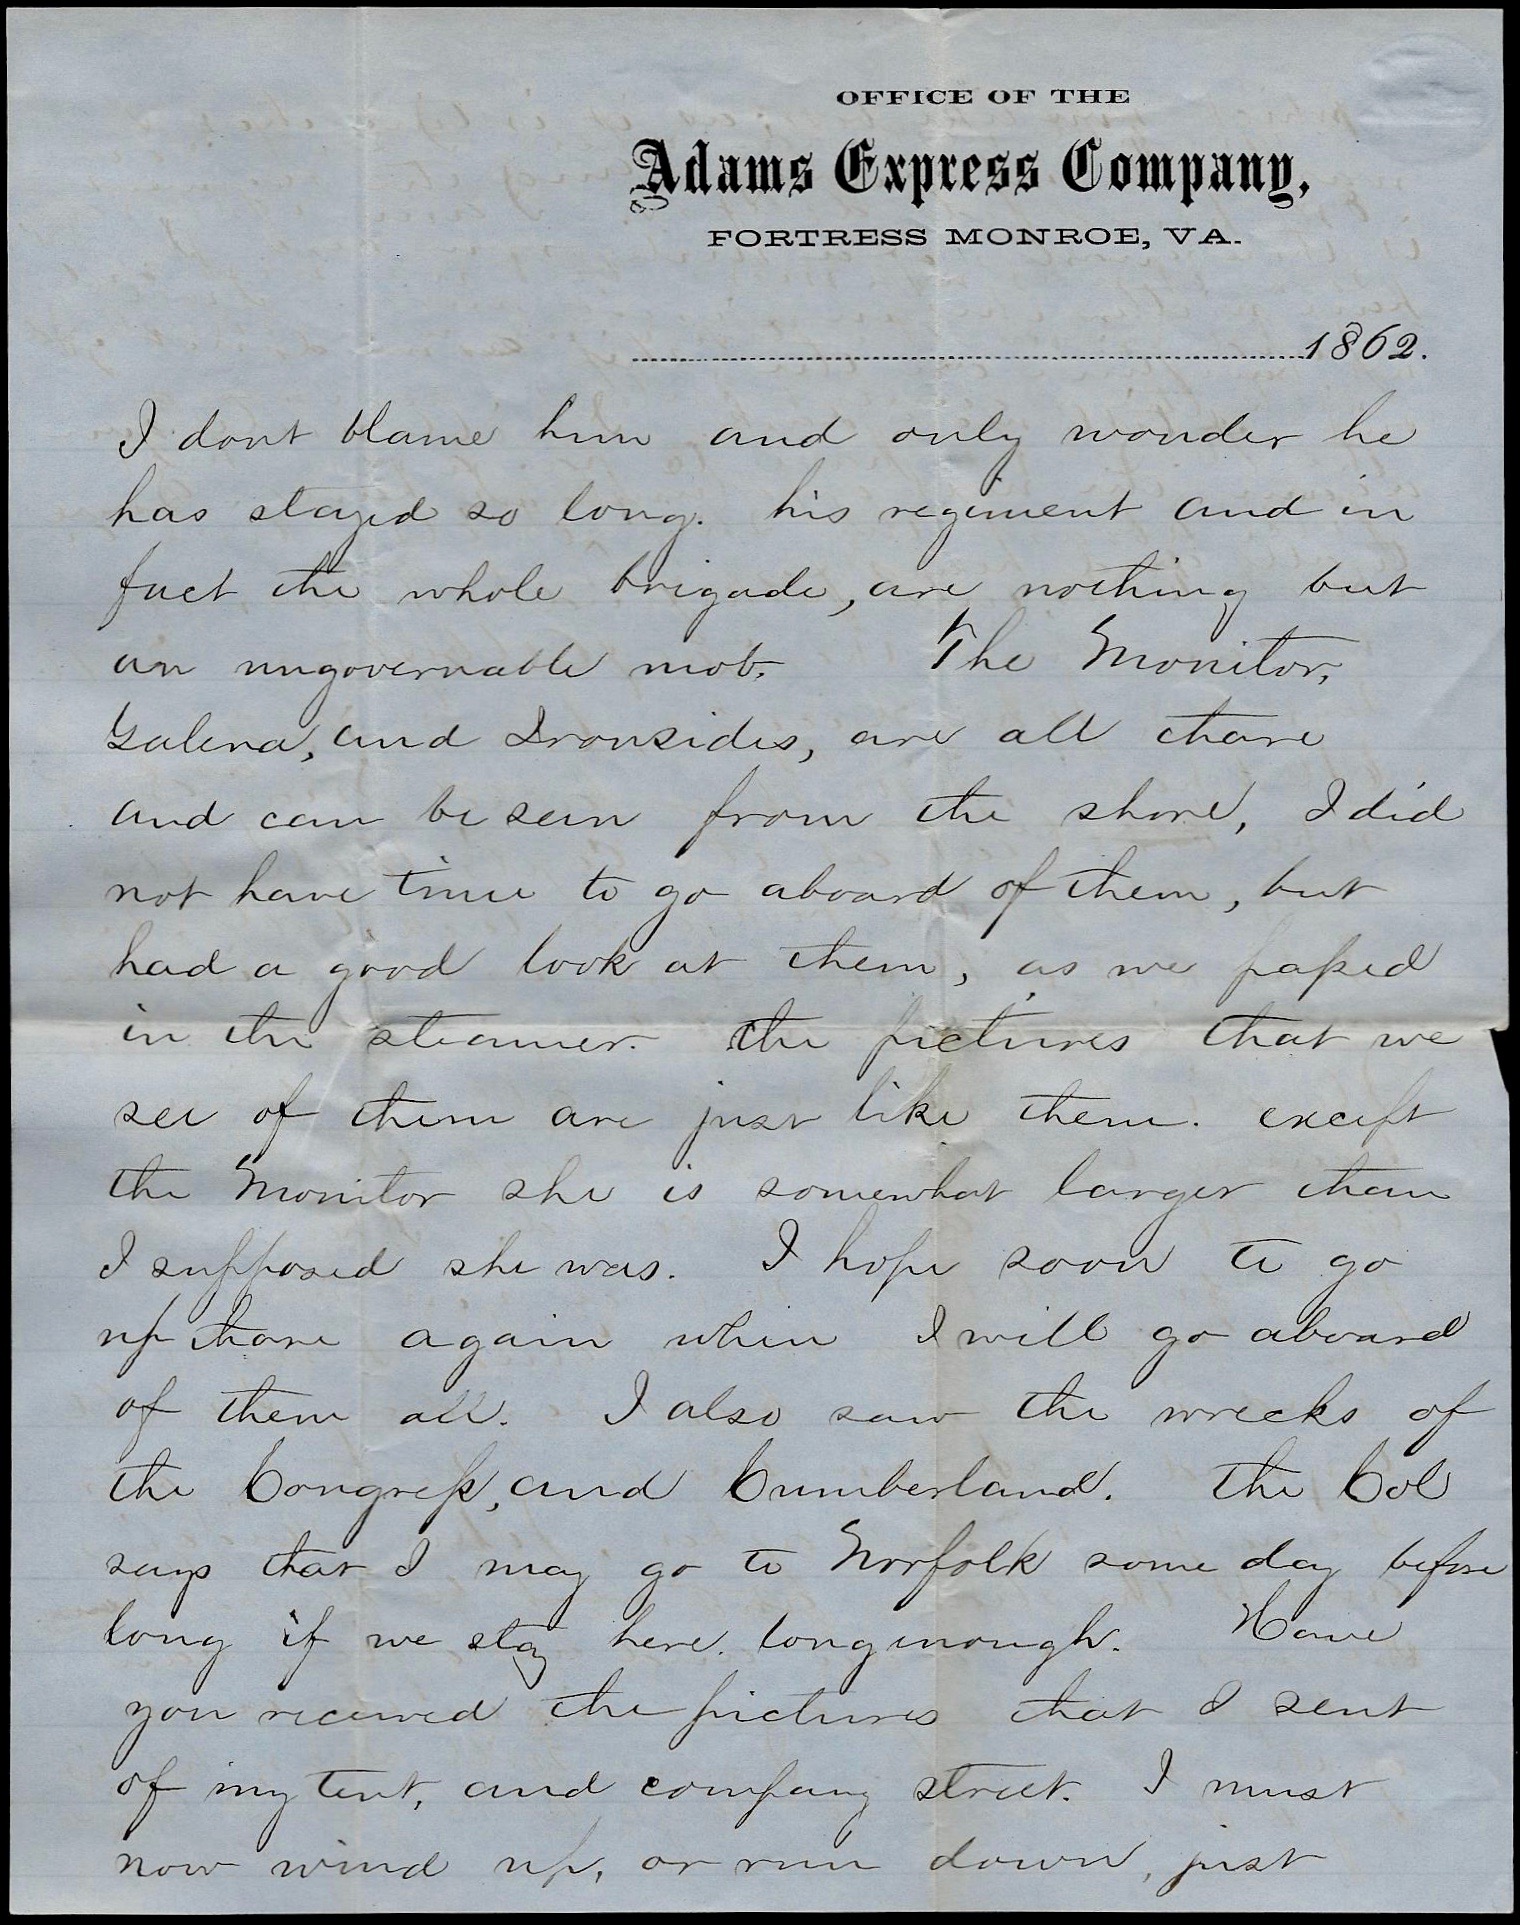 OFFICE OF THE
Adams Express Company,
FORTRESS MONROE, VA.
1862.
I dont blame him and only wonder he
has stayed so long. his regiment and in
fact the whole brigade, are nothing but
an ungovernable mob. The Monitor,
Galena, and Ironsides, are all thare
and can be seen from the shore, I did
not have time to go aboard of them, but
had a good look at them, as we paſsed
in the steamer. the pictures that we
see of them are just like them. except
the Monitor she is somewhat larger than
I supposed she was. I hope soon to go
up thare again when I will go aboard
of them all. I also saw the wrecks of
the Congreſs, and Cumberland. The Col
says that I may go to Norfolk some day before
long if we stay here. long enough. Have
you received the pictures that I sent
of my tent, and company street. I must
now wind up, or run down, just